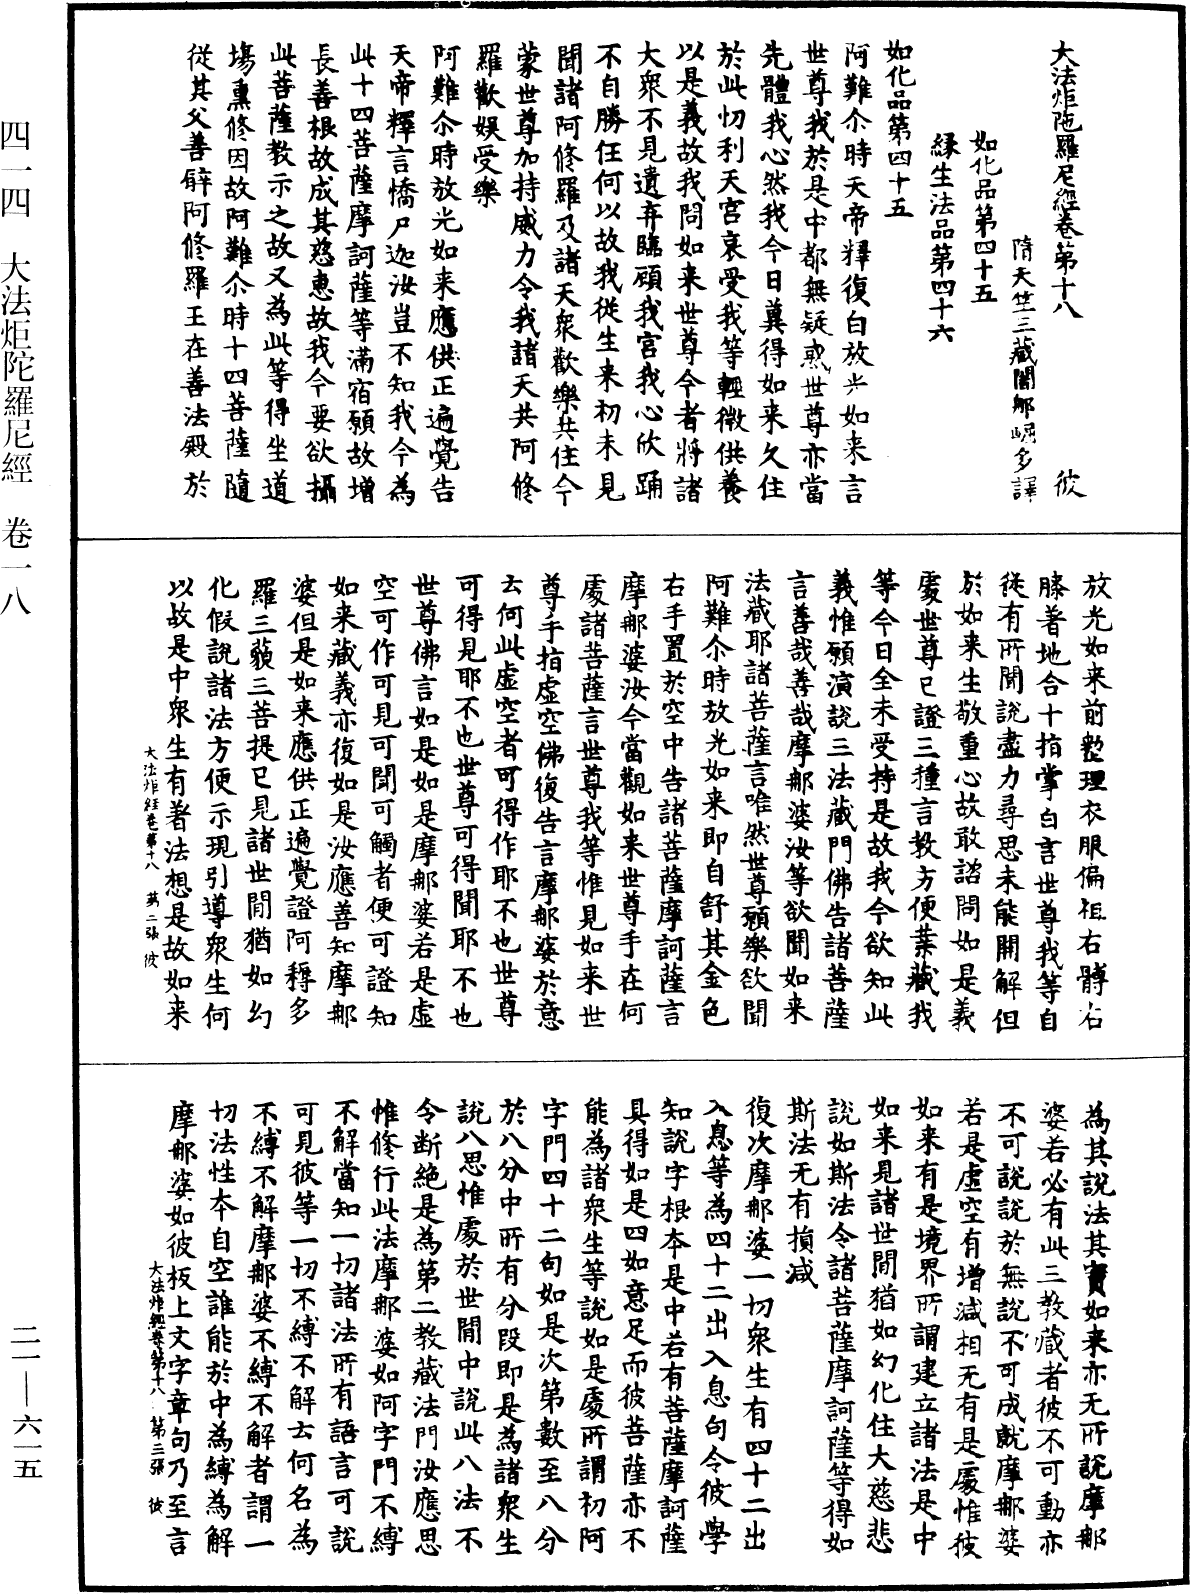 大法炬陁羅尼經卷第十八　彼
隋天竺三藏闍那崛多譯
如化品第四十五
緣生法品第四十六
如化品第四十五
阿難尒時天帝釋復白放光如来言
世尊我於是中都無疑惑世尊亦當
先體我心然我今日冀得如来久住
於此忉利天宮哀受我等輕微供養
以是義故我問如来世尊今者將諸
大衆不見遺弃臨顧我宮我心欣踊
不自勝任何以故我從生来初未見
聞諸阿修羅及諸天衆歡樂共住今
蒙世尊加持威力令我諸天共阿修
羅歡娛受樂
阿難尒時放光如来應供正遍覺告
天帝釋言憍尸迦汝豈不知我今為
此十四菩薩摩訶薩等滿宿願故增
長善根故成其慈惠故我今要欲攝
此菩薩教示之故又為此等得坐道
場熏修因故阿難尒時十四菩薩隨
從其父善臂阿修羅王在善法殿於
放光如来前整理衣服偏袒右髆右
膝著地合十指掌白言世尊我等自
從有所聞說盡力尋思未能開解但
於如来生敬重心故敢諮問如是義
處世尊已證三種言教方便業藏我
等今日全未受持是故我今欲知此
義惟願演說三法藏門佛告諸菩薩
言善哉善哉摩那婆汝等欲聞如来
法藏耶諸菩薩言唯然世尊願樂欲聞
阿難尒時放光如来即自舒其金色
右手置於空中告諸菩薩摩訶薩言
摩那婆汝今當觀如来世尊手在何
處諸菩薩言世尊我等惟見如来世
尊手指虛空佛復告言摩那婆於意
云何此虛空者可得作耶不也世尊
可得見耶不也世尊可得聞耶不也
世尊佛言如是如是摩那婆若是虛
空可作可見可聞可觸者便可證知
如来藏義亦復如是汝應善知摩那
婆但是如来應供正遍覺證阿耨多
羅三藐三菩提已見諸世間猶如幻
化假說諸法方便示現引導衆生何
以故是中衆生有著法想是故如来
大法炬經卷第十八　第二張　彼
為其說法其實如来亦无所說摩那
婆若必有此三教藏者彼不可動亦
不可說說於無說不可成就摩那婆
若是虛空有增減相无有是處惟彼
如来有是境界所謂建立諸法是中
如来見諸世間猶如幻化住大慈悲
說如斯法令諸菩薩摩訶薩等得如
斯法无有損減
復次摩那婆一切衆生有四十二出
入息等為四十二出入息句令彼學
知說字根夲是中若有菩薩摩訶薩
具得如是四如意足而彼菩薩亦不
能為諸衆生等說如是處所謂初阿
字門四十二句如是次第數至八分
於八分中所有分段即是為諸衆生
說八思惟處於世間中說此八法不
令断絕是為第二教藏法門汝應思
惟修行此法摩那婆如阿字門不縛
不解當知一切諸法所有語言可說
可見彼等一切不縛不解云何名為
不縛不解摩那婆不縛不解者謂一
切法性夲自空誰能於中為縛為解
摩那婆如彼板上文字章句乃至言
大法炬經卷第十八　第三張　彼
四一四　大法炬陀羅尼經　卷一八
二一—六一五